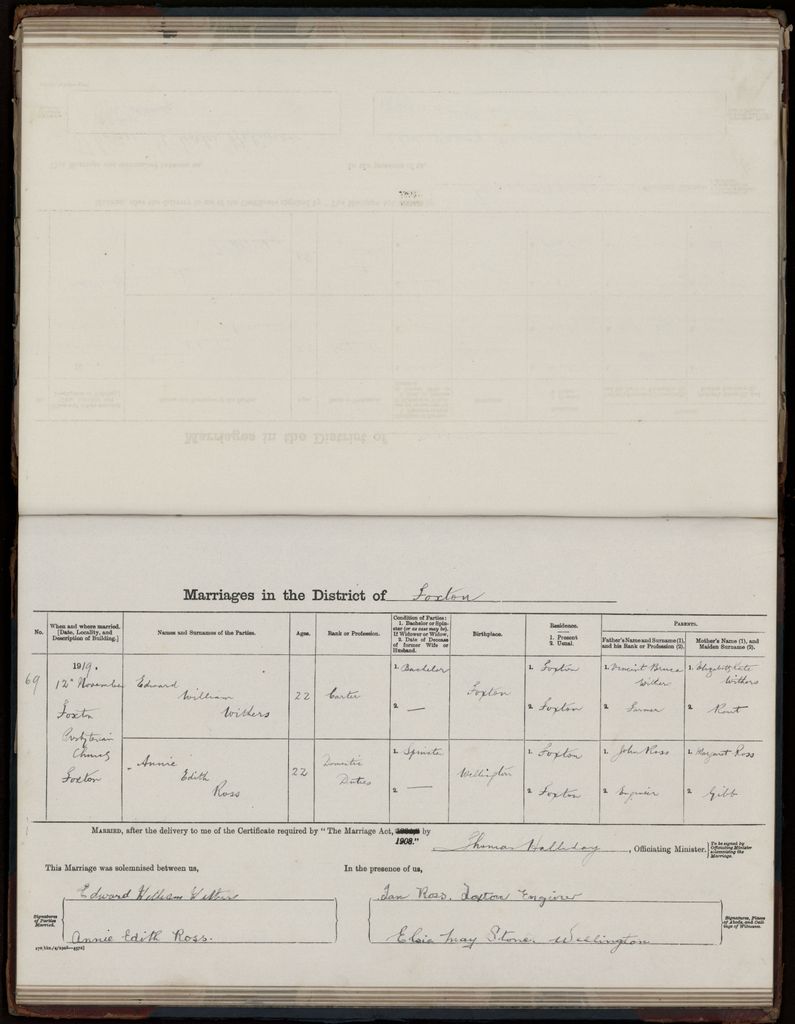 Marriages in the District of Foxton
No.
When and where married. [Date, Locality, and Description of Building.]
Names and Surnames of the Parties.
Ages.
Rank or Profession.
Condition of Parties: 1. Bachelor or Spinster (or as case may be). If Widower or Widow, 2. Date of Decease of former Wife or Husband.
Birthplace.
Residence. 1. Present 2. Usual.
Parents.
Father's Name and Surname (1), and his Rank or Profession (2).
Mother's Name (1), and Maiden Surname (2).
69
1919.
12th November
Foxton
Presbyterian
Church
Foxton
Edward
William
Withers
22
Carter
1. Bachelor
2. —
Foxton
1. Foxton
2. Foxton
1. Vincent
2. Farmer
1. Elizabeth Kate
Withers
2.
Annie
Edith
Ross
22
Domestic
Duties
1. Spinster
2. —
Wellington
1. Foxton
2. Foxton
1. John Ross
2. Engineer
1. Margaret Ross
2. Gibb
Married, after the delivery to me of the Certificate required by "The Marriage Act, 1908." by
Thomas Halliday, Officiating Minister. [To be signed by Officiating Minister solemnizing the Marriage.
This Marriage was solemnised between us,
In the presence of us,
Signatures of Parties Married.
Edward William Withers
Annie Edith Ross.
Ian Ross. Foxton Engineer
Elsie May Stone Wellington
Signatures, Places of Abode, and Callings of Witnesses.